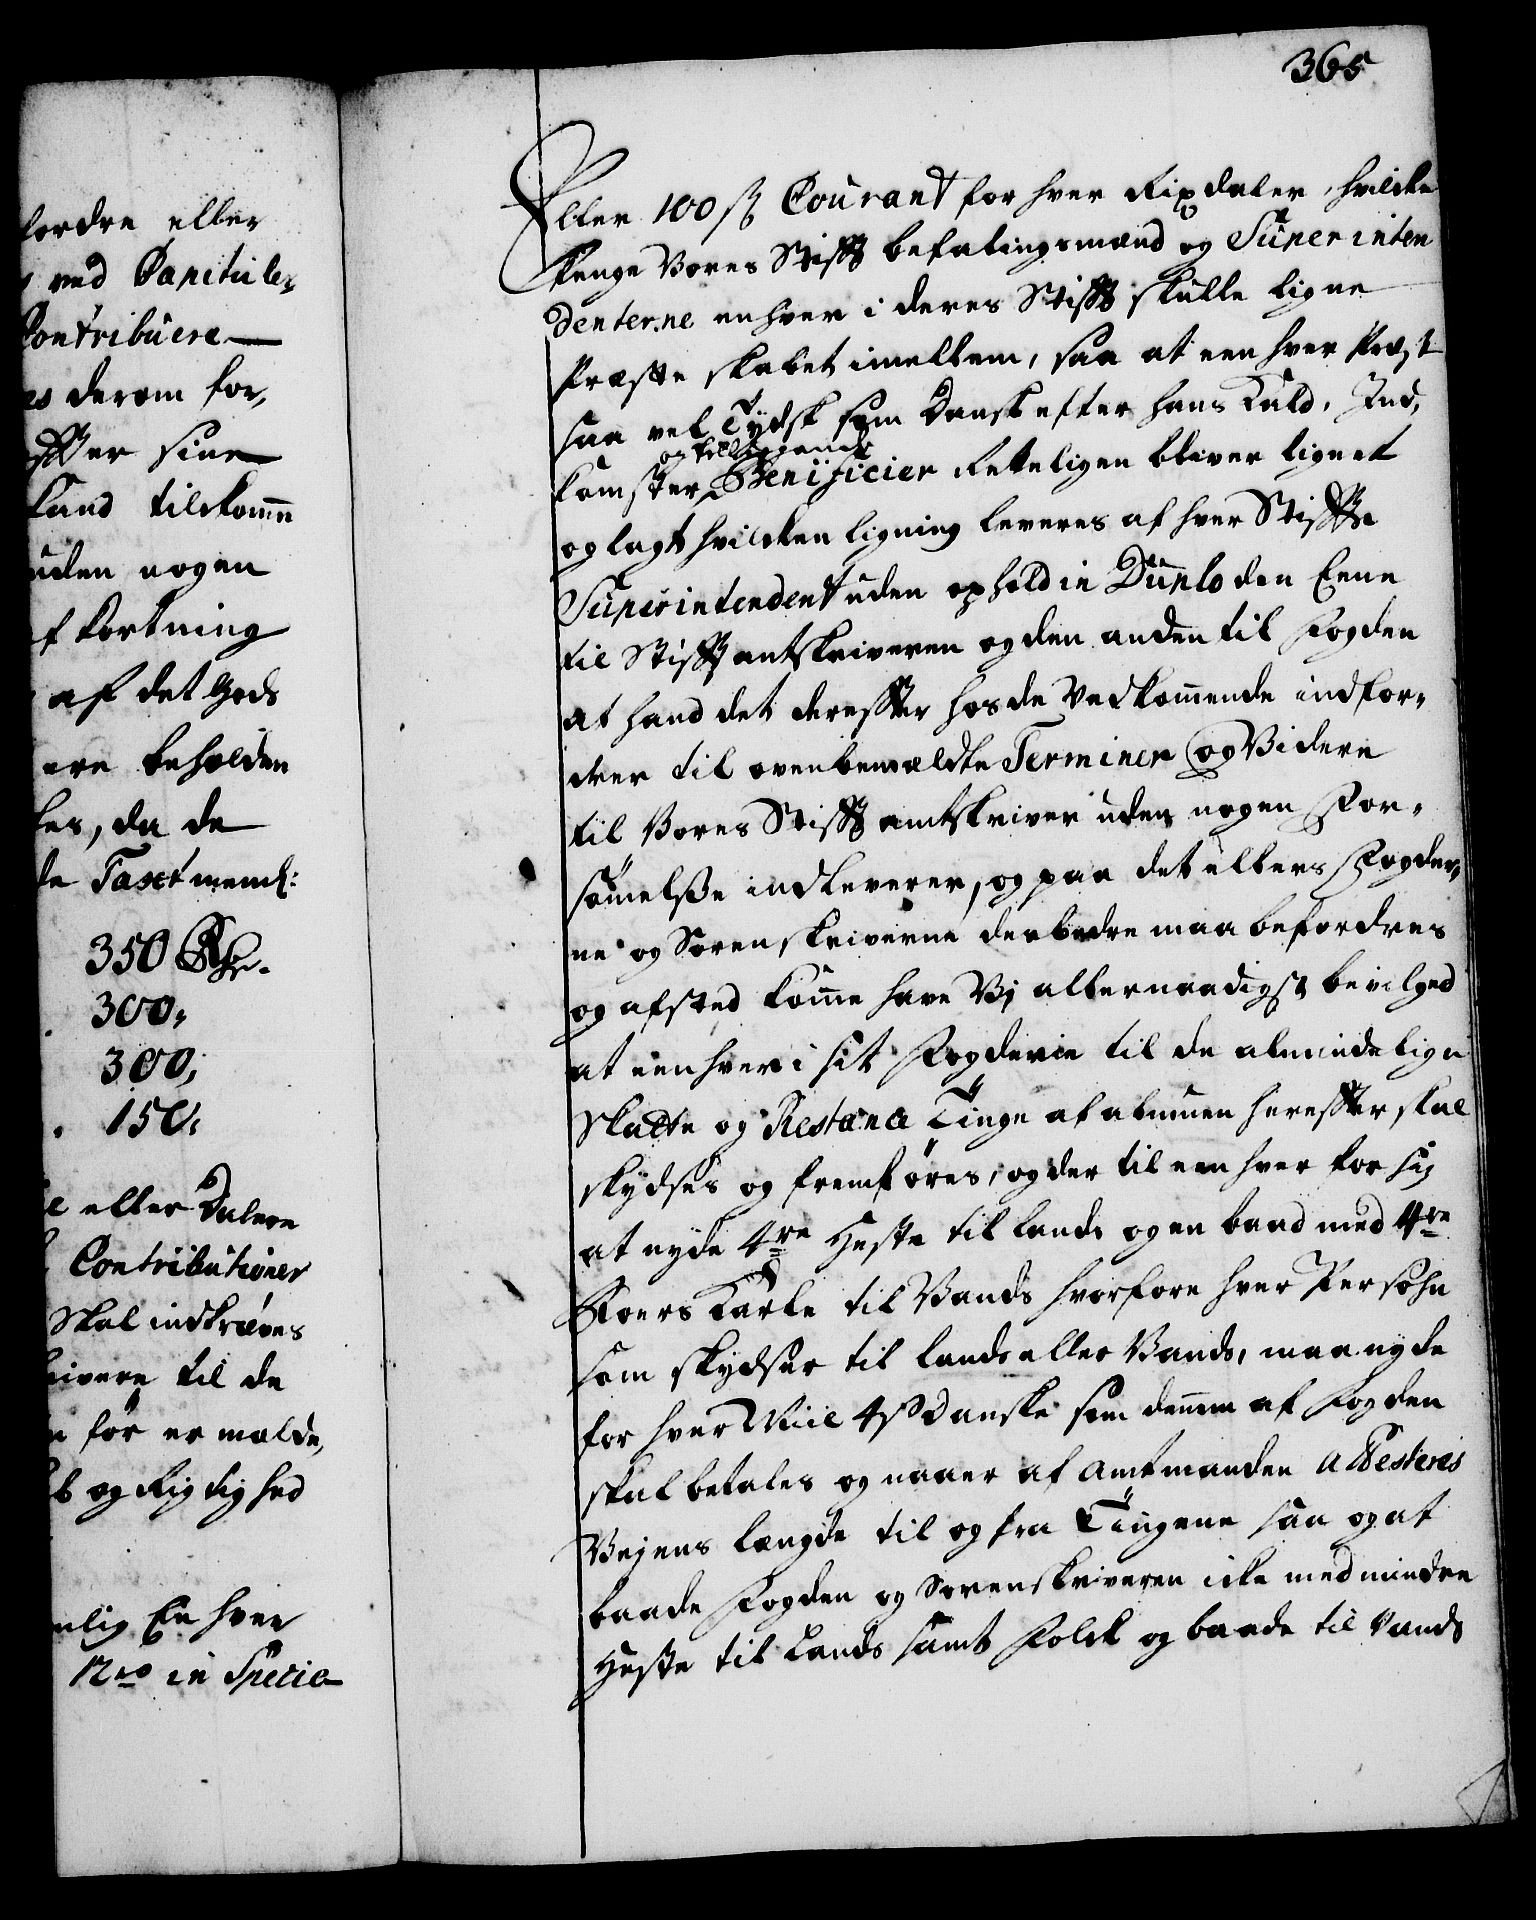 fordre eller
ved Capitule,
Contribuere
derom for,
efter sine
kand tilkomme
uden nogen
af kortning
af det Gods
ere beholden
les, da de
de Taxt meml:
350 Rdr.
300,
300,
150,
eller Dalere
Contributioner
Skal indkræves
skrivere til de
før er melde,
og Rigtighed
nlig En hver
12 in Specie
365
Eller 100 ß Courant for hver Rixdaler, hvilcke
Penge Vores Stifftbefalingsmænd og Superinten
denterne enhver i deres Stifft skulle ligne
Præsteskabet imellem, saa at een hver Præst
saa vel Tydsk som Dansk efter hans Kald, Ind,
og tilliggende
komster Beneficier Retteligen bliver lignet
og lagt hvilcken ligning leveres af hver Stiffts
Superintendent uden ophold in Duplo den Eene
til Stifftamtskriveren og den anden til Fogden
at hand det derefter hos de Vedkommende indfor,
drer til ovenbemeldte Terminer og Videre
til Vores Stifftamtskriver uden nogen For,
sømelße indleverer, og paa det ellers Fogder,
ne og Sorenskriverne des bedre maa befordres
og afsted komme have Vi allernaadigst bevilget
at een hver i sit Fogderie til de almindelige
Skatte og Restance Tinge af almuen herefter skal
skydses og fremføres, og der til een hver for sig
at nyde 4re Heste til lands og en baad med 4re
Roers Karle til Vands hvorfore hver Persohn
som skydser til lands eller Vands, maa nyde
for hver Miil 4 ß danske som dennem af Fogden
skal betales og naar af Amtmanden Attesteris
Vejens længde til og fra Tingene saa og at
baade Fogden og Sorenskriveren icke med mindre
Heste til Lands samt Folck og baade til Vands